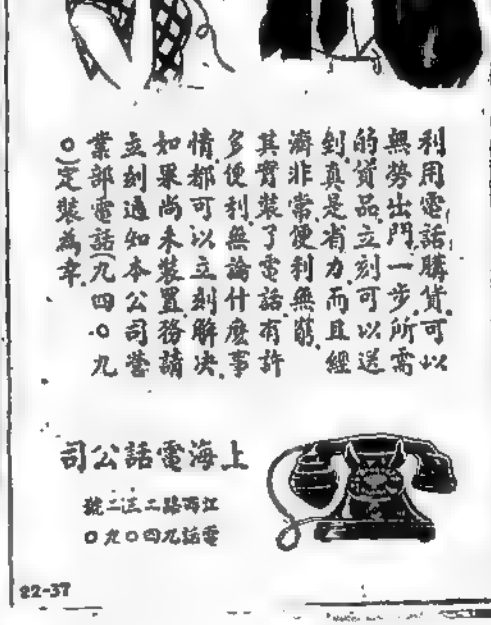 利用電話購貨可以
無勞出門一步所需
的貨品立刻可以送
到真是省力而且經
濟非常便利無
其實裝了電話有許
多便利無論什麽事
情都可以立刻解决
如果尚未裝置務請
立刻通知本公司營
業部電話(九四〇九
〇)定裝為幸
上海電話公司
江西路二三二號
電話九四〇九〇
22-37